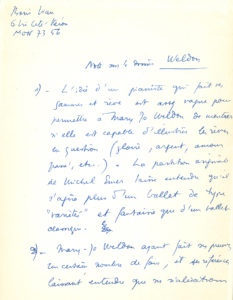 6 Cité
MON 73 56
Note sur le dossier Weldon
1) - L'idée d'un pianiste qui fait ses
gammes et rêve est assez vague pour
permettre à Mary-Jo Weldon de montrer
si elle est capable d'illustrer le rêve
en question (gloire, argent, amour,
etc..) - La partition originale
de Michel laisse entendre qu'il
s'agira plus d'un ballet de type
"variété" et fantaisie que d'un ballet
classique.
2) - Mary-Jo Weldon ayant fait ses preuves
un certain nombre de fois, et
laissant entendre que